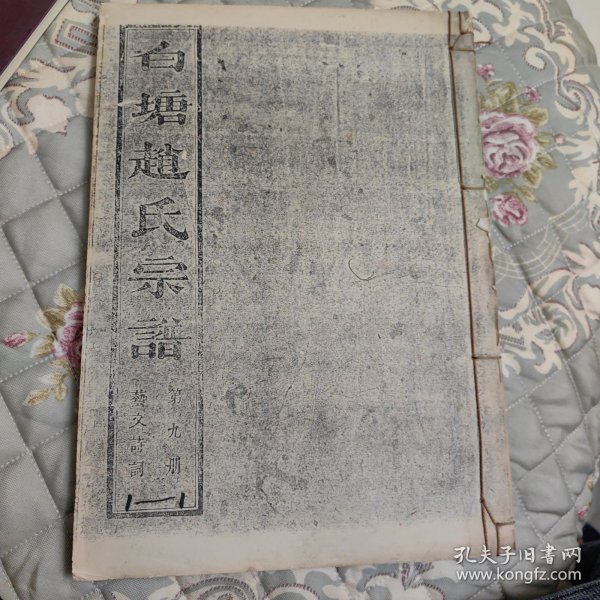 白塘趙氏宗譜
第九册
藝文詩詞
(一)
孔夫子旧書网
www.kongfz.com